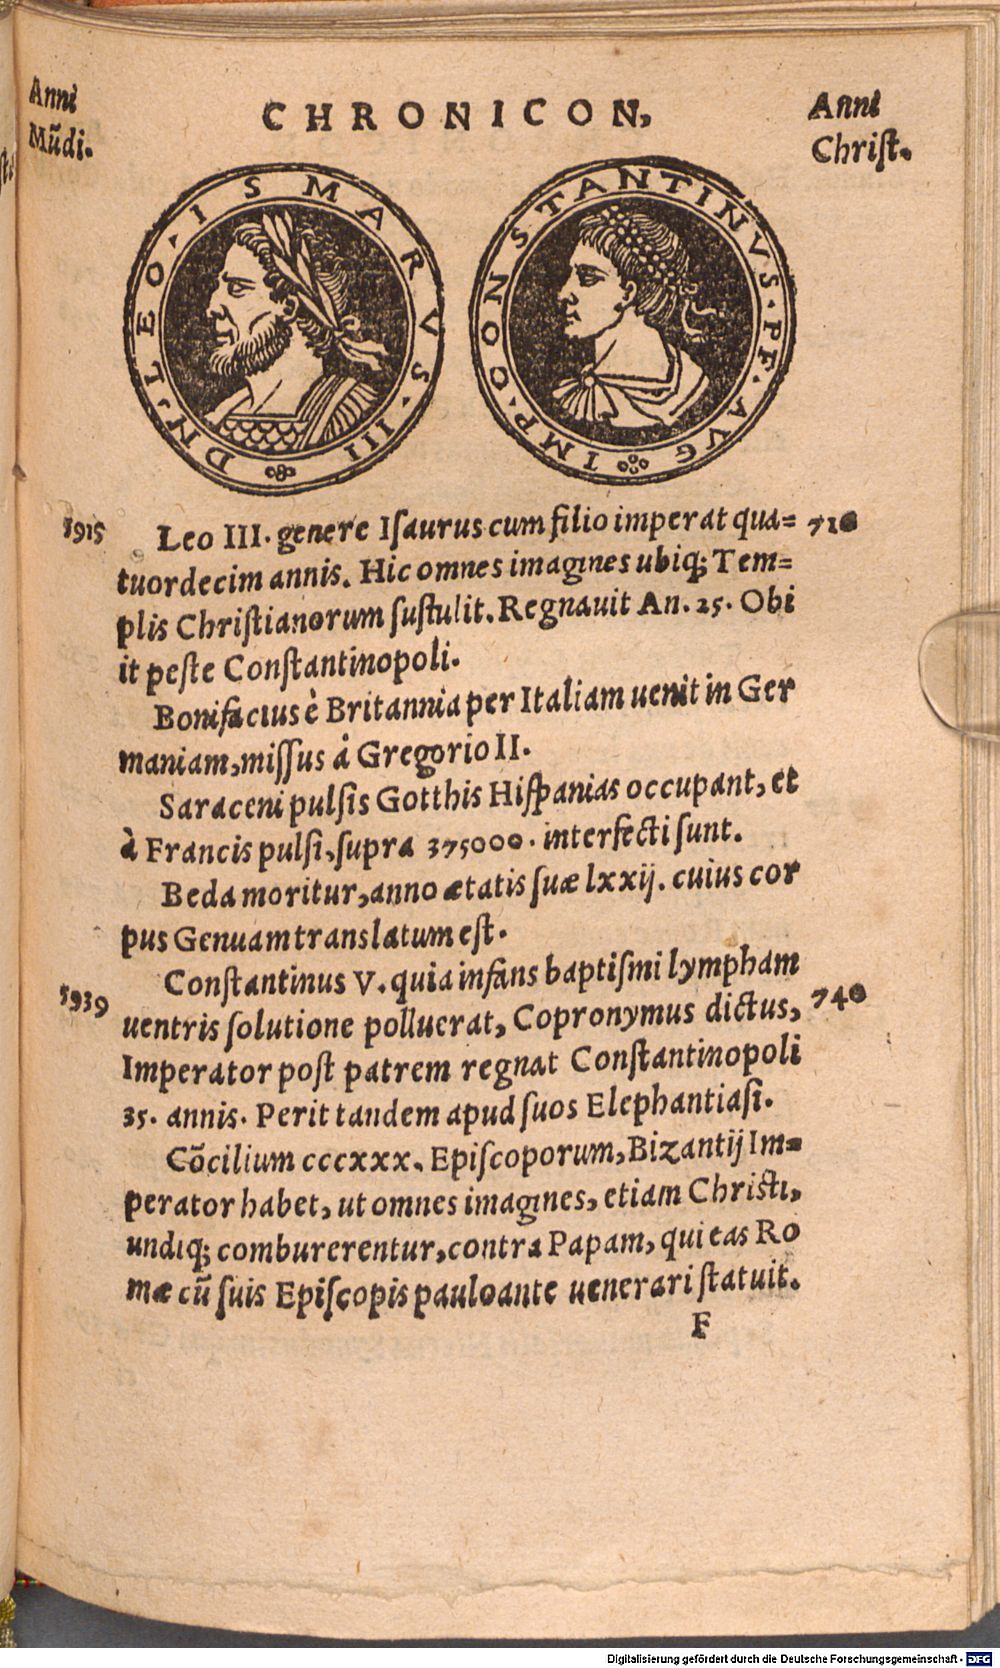 Anni
Mũdi.
CHRONICON,
Anni
Chriſt.
DN·LEO·ISMARVS·III
IMP·CONSTANTINVS·PF·AVG
5915
Leo III. genere Iſaurus cum filio imperat qua=
710
tuordecim annis. Hic omnes imagines ubiq; Tem=
plis Chriſtianorum ſuſtulit. Regnauit An. 25. Obi
it peſte Conſtantinopoli.
Bonifacius è Britannia per Italiam uenit in Ger
maniam, miſſus à Gregorio II.
Saraceni pulſis Gotthis Hiſpanias occupant, et
à Francis pulſi, ſupra 375000. interfecti ſunt.
Beda moritur, anno ætatis ſuæ lxxij. cuius cor
pus Genuam translatum eſt.
Conſtantinus V. quia infans baptiſmi lympham
5939
uentris ſolutione polluerat, Copronymus dictus,
740
Imperator post patrem regnat Conſtantinopoli
35. annis. Perit tandem apud ſuos Elephantiaſi.
Cõcilium cccxxx. Epiſcoporum, Bizantij Im=
perator habet, ut omnes imagines, etiam Christi,
undiq; comburerentur, contra Papam, qui eas Ro
mæ cũ ſuis Epiſcopis pauloante uenerari ſtatuit.
F
Digitalisierung gefördert durch die Deutsche Forschungsgemeinschaft - DFG